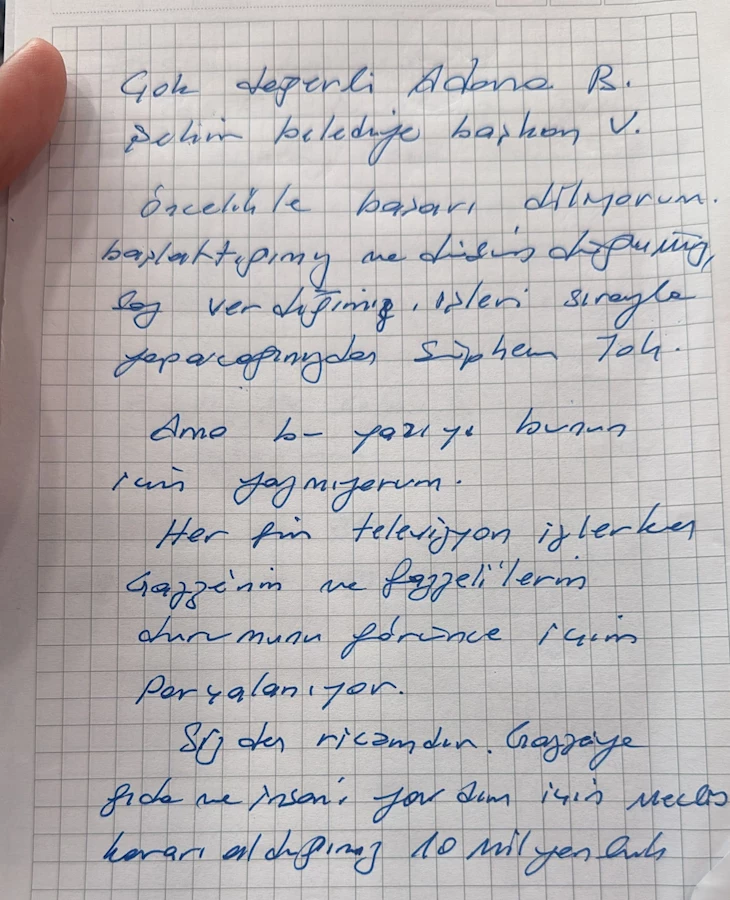 Çok değerli Adana B.
Şehir belediye başkan V.
öncelikle başarı diliyorum.
başlattığınız ve düşündüğünüz,
söz verdiğiniz işleri sırayla
yapacağınızdan şüphem yok.
Ama bu yazıyı bunun
için yazmıyorum.
Her gün televizyon izlerken
Gazze'nin ve gazzeli'lerin
durumunu görünce içim
parçalanıyor.
Sizden ricamdır. Gazzeye
gıda ve insani yardım için meclis
kararı aldığınız 10 milyonluk